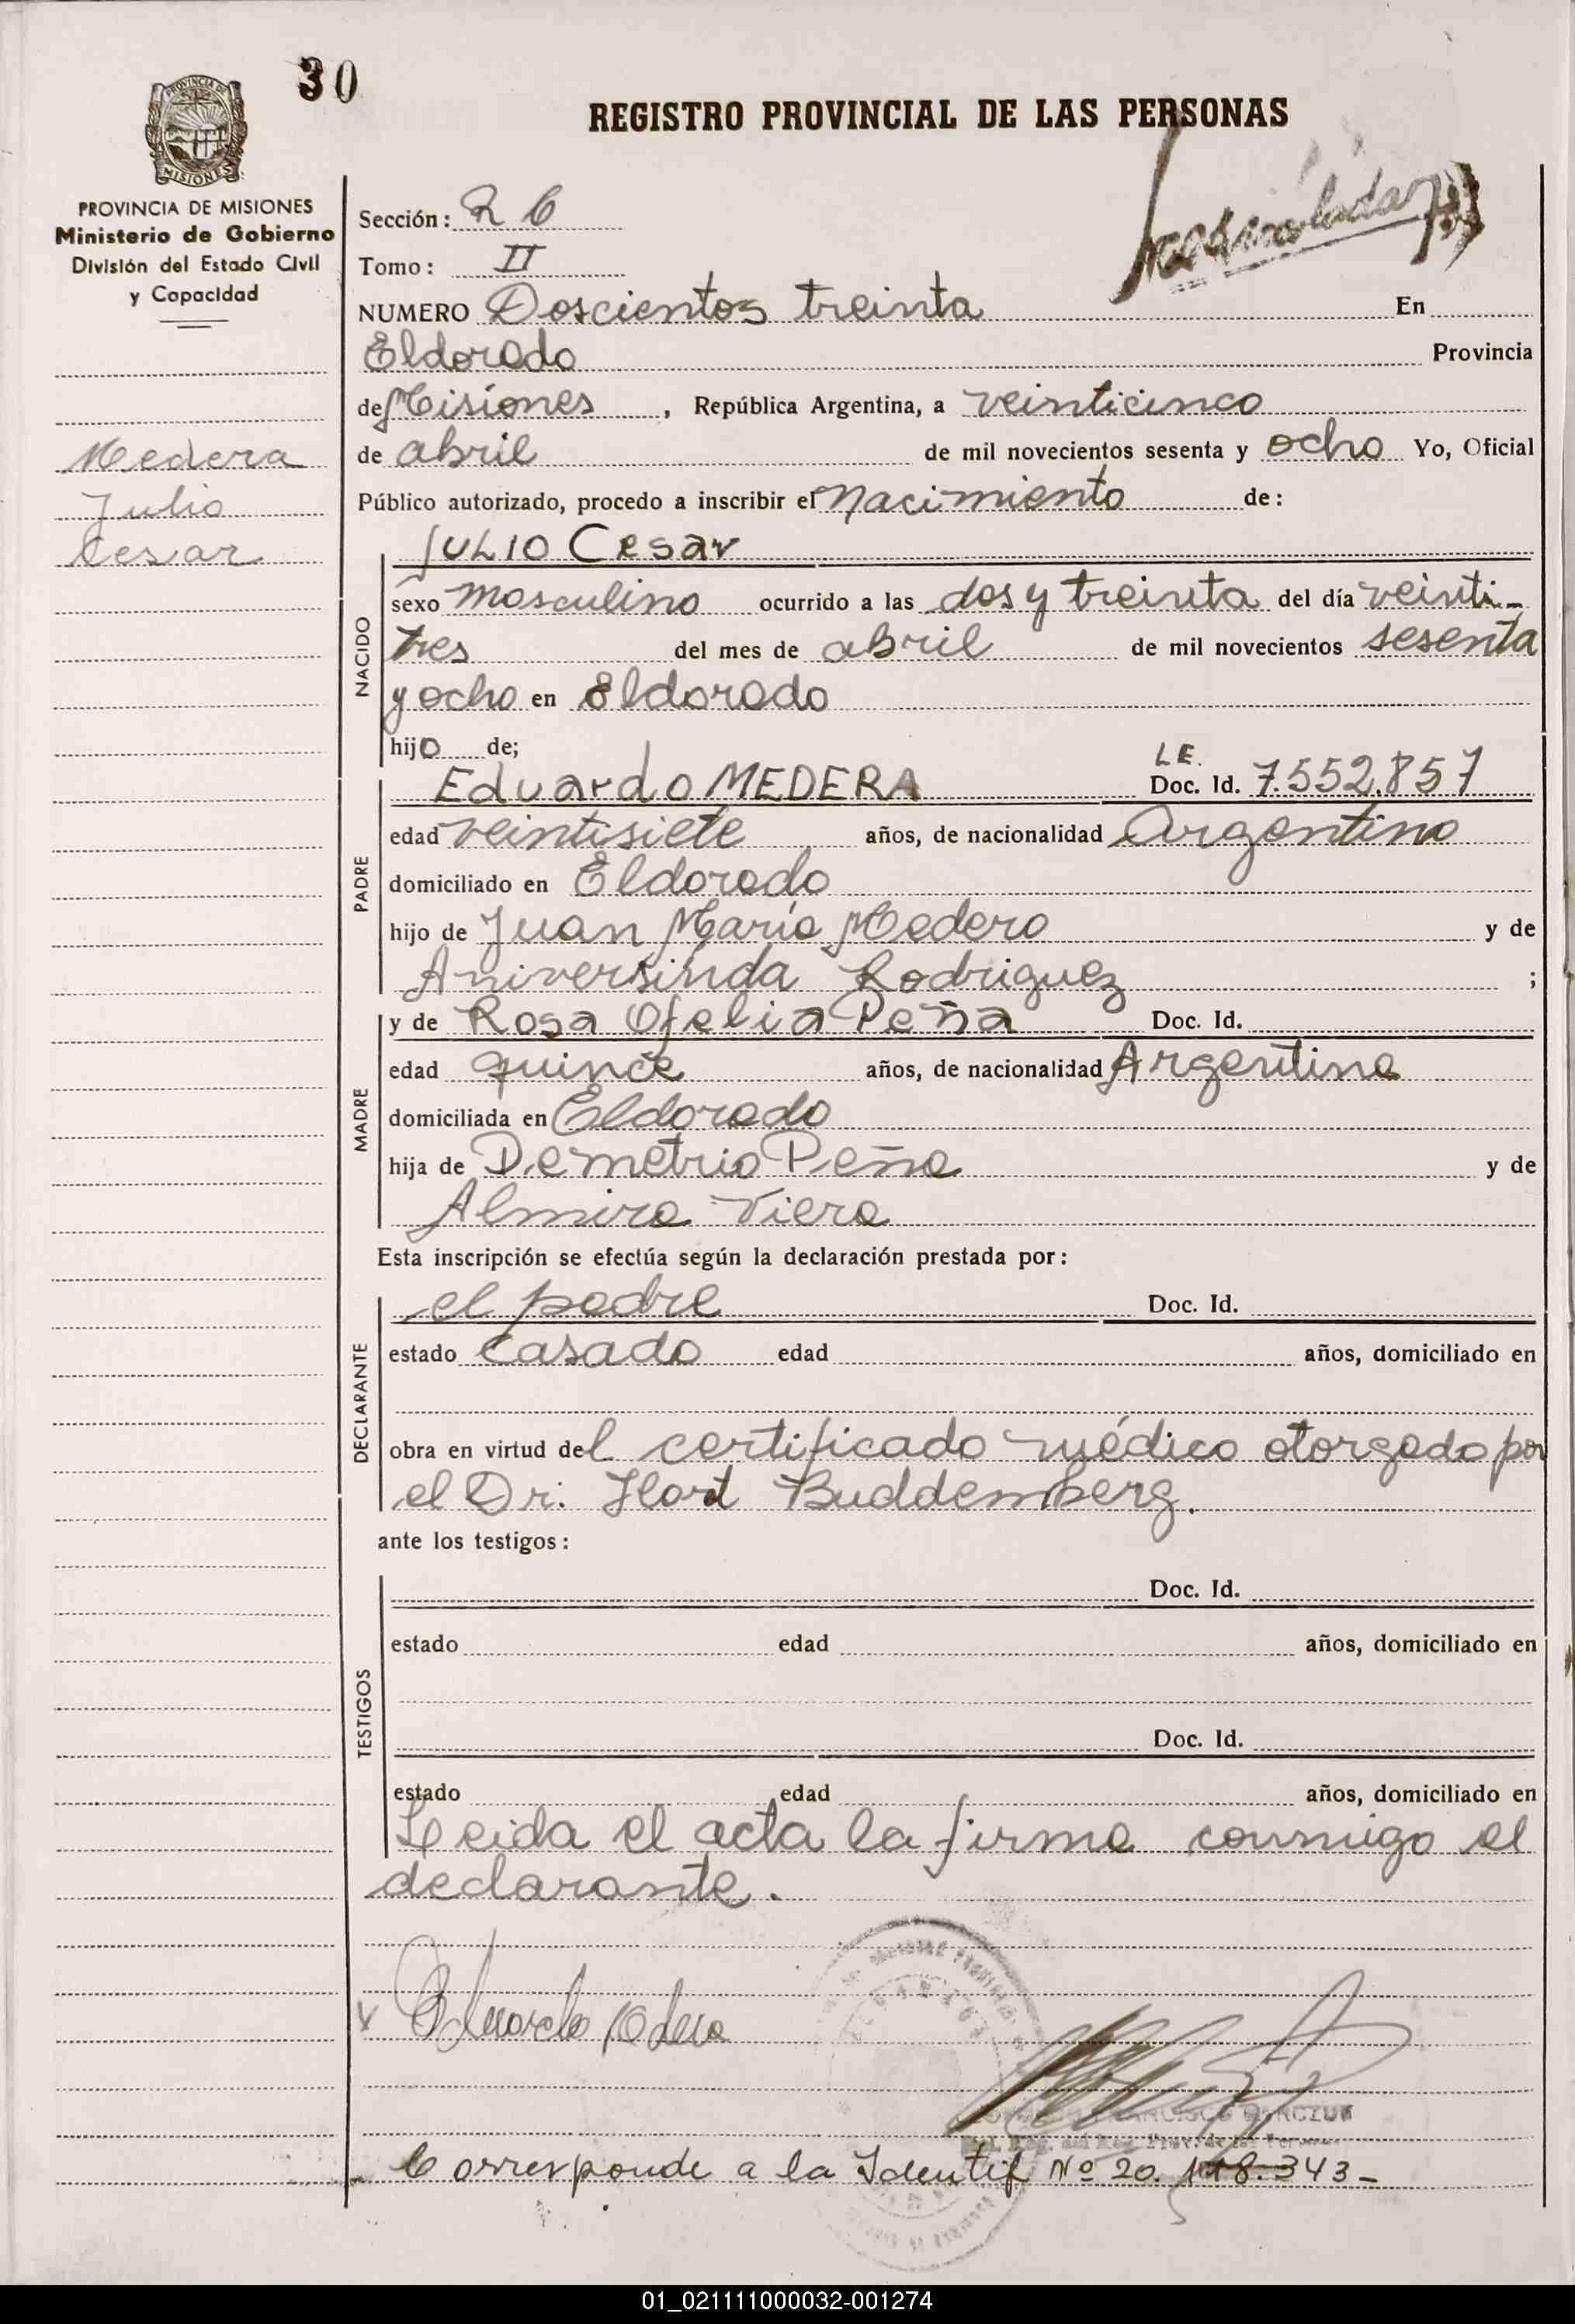 30
REGISTRO PROVINCIAL DE LAS PERSONAS
PROVINCIA DE MISIONES
MISIONES
PROVINCIA DE MISIONES
Ministerio de Gobierno
División del Estado Civil
y Capacidad
Medera
Julio
Cesar
Sección: R C
Tomo: II
NUMERO Doscientos treinta En
Eldorado Provincia
de Misiones, República Argentina, a veinticinco
de abril de mil novecientos sesenta y ocho Yo, Oficial
Público autorizado, procedo a inscribir el Nacimiento de:
NACIDO
JULIO Cesar
sexo masculino ocurrido a las dos y treinta del día veinti-
tres del mes de abril de mil novecientos sesenta
y ocho en Eldorado
hijo de;
PADRE
Eduardo MEDERA L.E. Doc. Id. 7.552.857
edad veintisiete años, de nacionalidad Argentino
domiciliado en Eldorado
hijo de Juan María Medero y de
Aniversinda Rodriguez ;
MADRE
y de Rosa Ofelia Peña Doc. Id.
edad quince años, de nacionalidad Argentina
domiciliada en Eldorado
hija de Demetrio Peña y de
Almira Viera
Esta inscripción se efectúa según la declaración prestada por:
DECLARANTE
el padre Doc. Id.
estado casado edad años, domiciliado en
obra en virtud del certificado médico otorgado por
el Dr. Hort Buddemberg.
ante los testigos:
TESTIGOS
Doc. Id.
estado edad años, domiciliado en
Doc. Id.
estado edad años, domiciliado en
Leida el acta la firma conmigo el
declarante.
Eduardo Medera
Corresponde a la Identif Nº 20. 118.343-
01_021111000032-001274